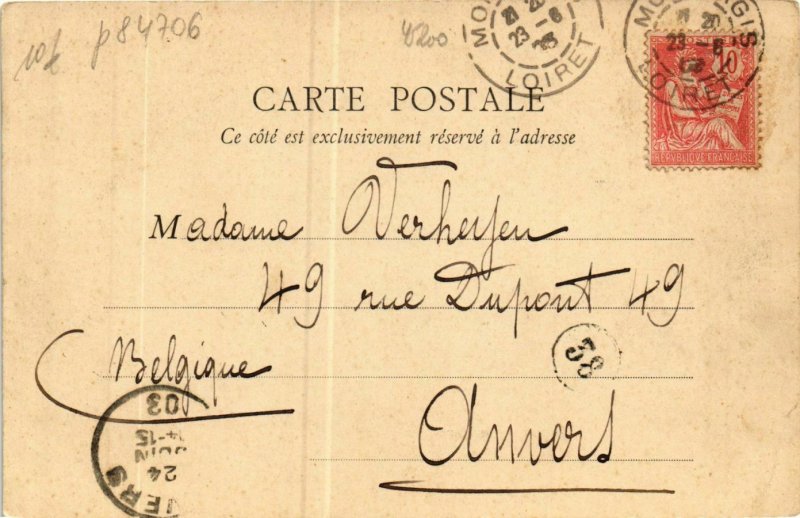 10f p84706 4200
LOIRET
23
LOIRET
POSTES
10
REPUBLIQUE FRANÇAISE
CARTE POSTALE
Ce côté est exclusivement réservé à l'adresse
Madame Verheyen
49 rue Dupont 49
38
Belgique
Anvers
03
14-15
JUIN
24
VERS